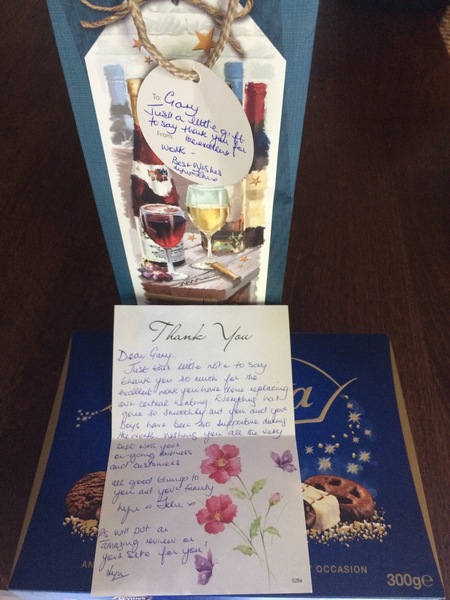 To: Gary
Just a little gift
to say thank you for
From: the excellent
work –
Best Wishes
Thank You
Dear Gary,
Just this little note to say
thank you so much for the
excellent work you have done replacing
our central heating. Everything has
gone so smoothly and you and your
boys have been so supportive during
the work. Wishing you all the very
best with your
on-going business
and customers
all good things to
you and your family
Lyn & John x
PS will put an
amazing review on
your site for you!
Lyn
a
AN
OCCASION
300g e